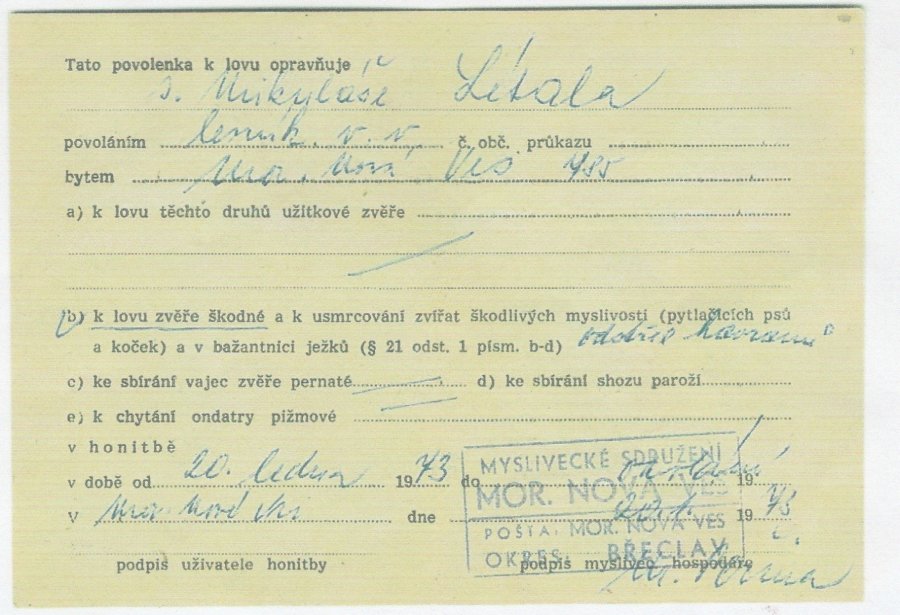 Tato povolenka k lovu opravňuje
s. Mikyláše Létala
povoláním v. v. č. obč. průkazu
bytem Mor. Nová Ves 785
a) k lovu těchto druhů užitkové zvěře
b) k lovu zvěře škodné a k usmrcování zvířat škodlivých myslivosti (pytlačících psů
a koček) a v bažantnici ježků (§ 21 odst. 1 písm. b-d)
c) ke sbírání vajec zvěře pernaté d) ke sbírání shozu paroží
e) k chytání ondatry pižmové
v honitbě
v době od 20. ledna 1973 do odvolání 19
V Mor. Nové Vsi dne 20. 1. 1973
MYSLIVECKÉ SDRUŽENÍ
MOR. NOVÁ VES
POŠTA: MOR. NOVÁ VES
OKRES: BŘECLAV
podpis uživatele honitby podpis myslivec. hospodáře